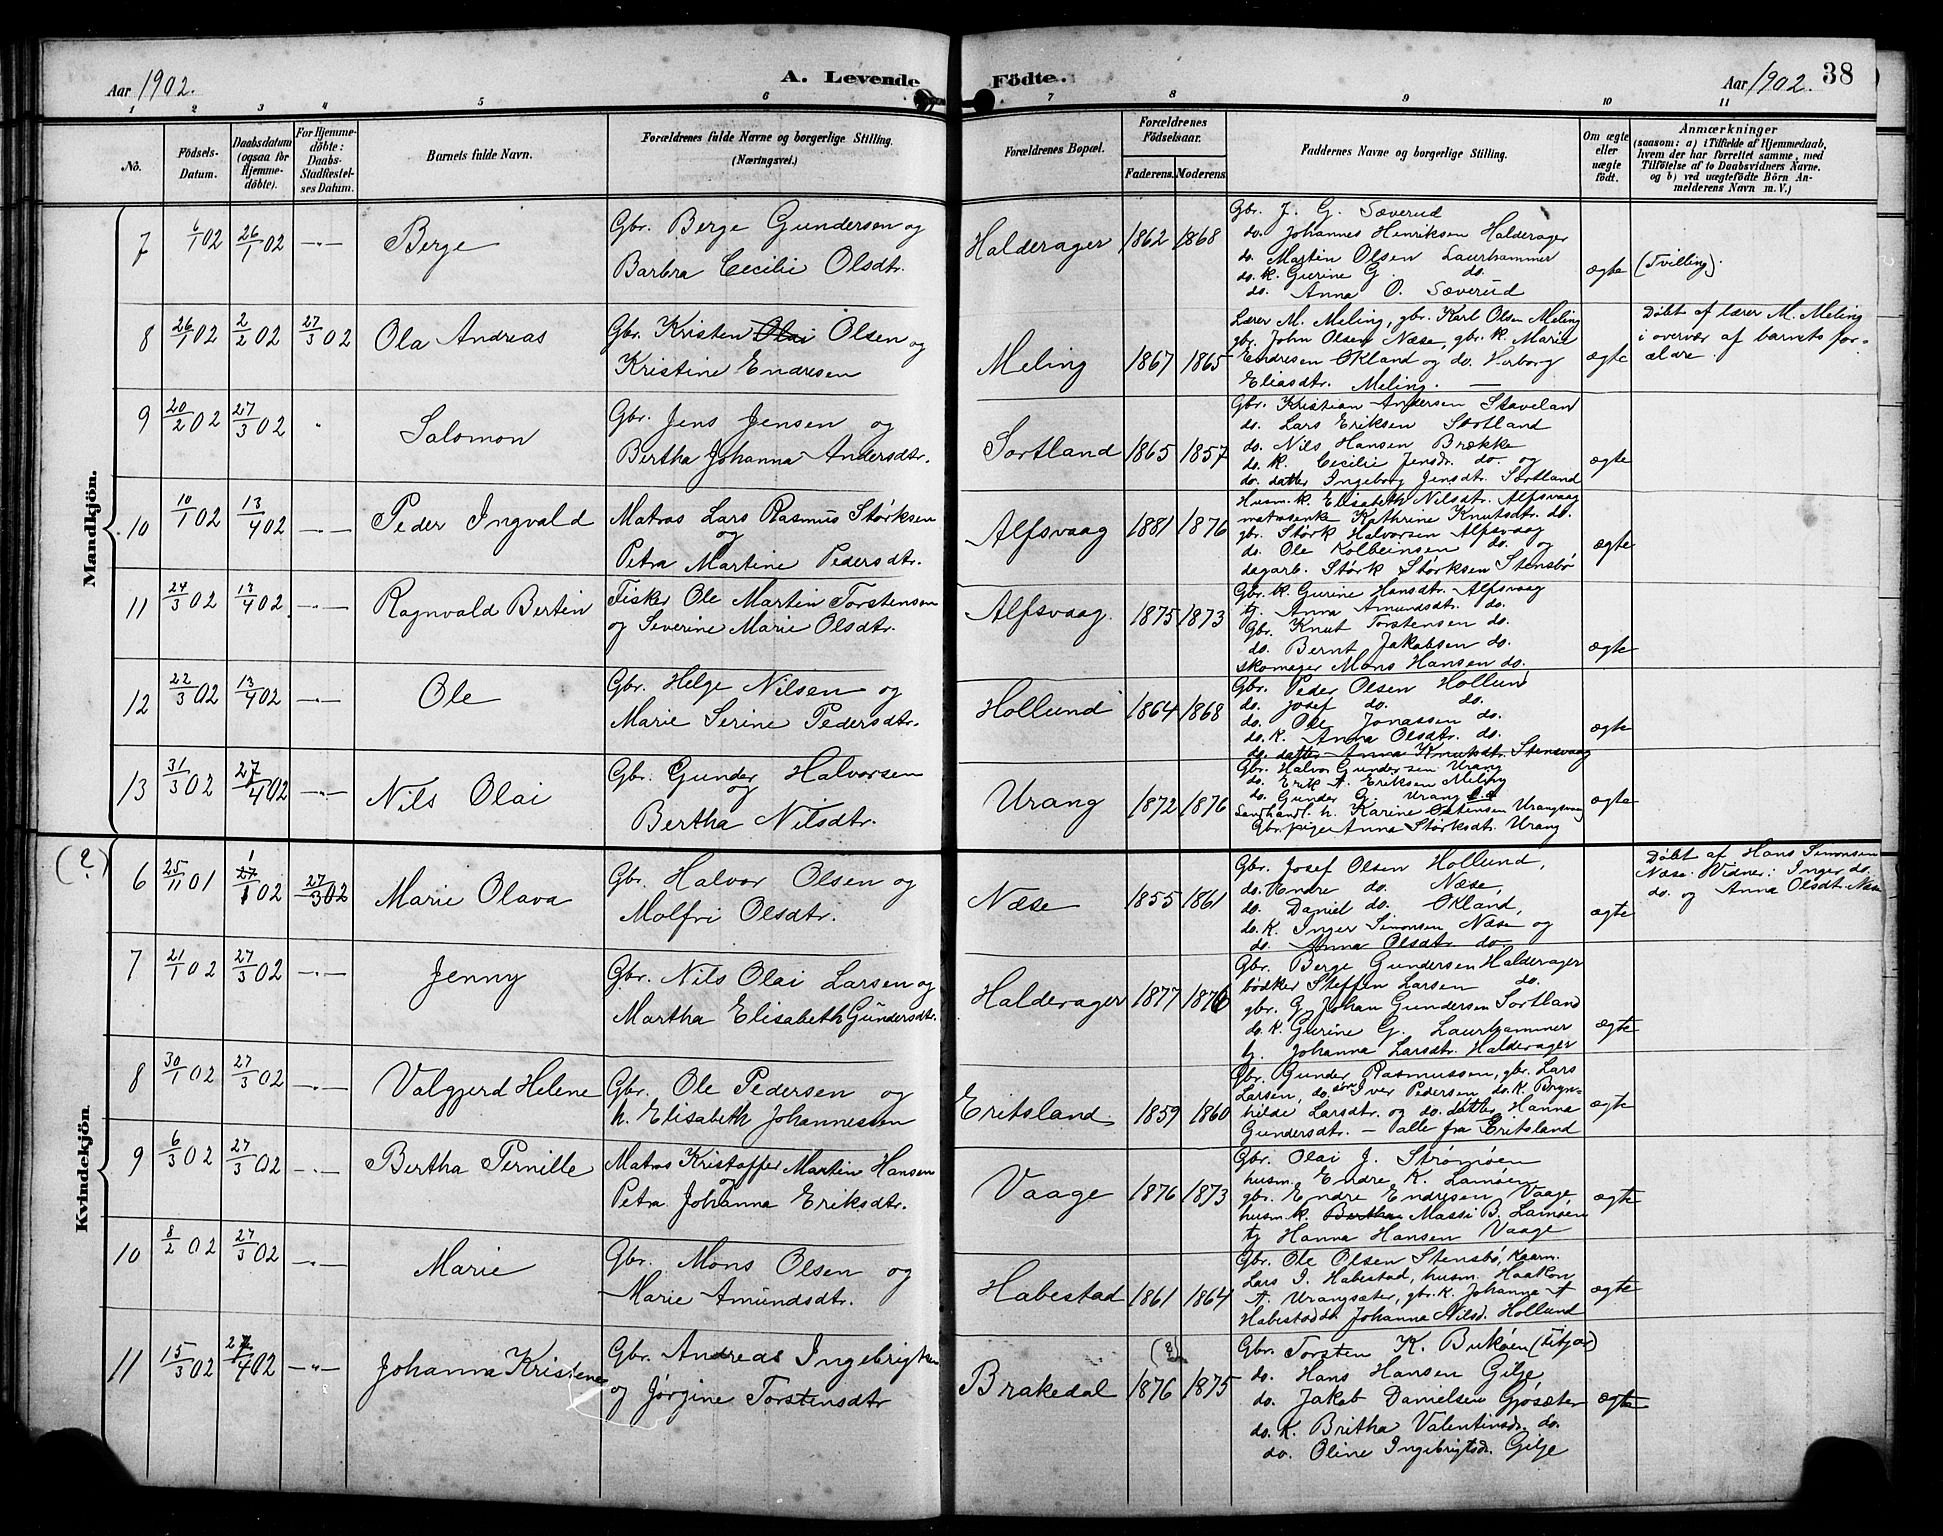 Aar 1902.
A. Levende Födte.
Aar 1902.
38
1 2 3 4 5 6 7 8 9 10 11
No.
Födsels-Datum.
Daabsdatum (ogsaa for Hjemme-döbte).
For Hjemme-döbte: Daabs-Stadfæstel-ses Datum.
Barnets fulde Navn.
Forældrenes fulde Navne og borgerlige Stilling. (Næringsvei.)
Forældrenes Bopæl.
Forældrenes Födselsaar.
Faderens. Moderens.
Faddernes Navne og borgerlige Stilling.
Om ægte eller uægte födt.
Anmærkninger
(saasom: a) i Tilfælde af Hjemmedaab,
hvem der har forrettet samme, med
Tilföielse af to Daabsvidners Navne.
og b) ved uægtefödte Börn An-
melderens Navn m. V.)
Mandkjön.
7 6/1 02 26/1 02 —"— Berge
Gbr. Berge Gundersen og
Barbra Cecilie Olsdtr.
Halderager 1862 1868
Gbr. J. G. Sæverud
do. Johannes Henriksen Halderager
do. Martin Olsen Laurhammer
do. k. Gurine G. do.
do. Anna O. Sæverud
ægte (Tvilling).
8 26/1 02 2/2 02 27/3 02 Ola Andreas
Gbr. Kristen Olai Olsen og
Kristine Endresen
Meling 1867 1865
Lærer M. Meling, gbr. Karl Olsen Meling
gbr. John Olsen Næse, gbr. k. Marie
Endresen Økland og do. Vorborg
Eliasdtr. Meling. —
ægte
Døbt af lærer M. Meling
i overvær af barnets for-
ældre.
9 20/2 02 27/3 02 " Salomon
Gbr. Jens Jensen og
Bertha Johanna Andersdtr.
Sortland 1865 1857
Gbr. Kristian Andersen Stavelan
do. Lars Eriksen Sortland
do. Nils Hansen Brække
do. k. Cecilie Jensdr. do. og
do. datter Ingeborg Jensdtr. Sortland
ægte
10 10/1 02 13/4 02 —"— Peder Ingvald
Matros Lars Rasmus Størksen
og
Petra Martine Pedersdtr.
Alfsvaag 1881 1876
Husm. k. Elisabeth Nilsdtr. Alfsvaag
matrosenke Kathrine Knutsdtr. do.
gbr. Størk Halvorsen Alfsvaag
do. Ole Kolbeinsen do. og
dagarb. Størk Størksen Stensbø
ægte
11 24/3 02 13/4 02 —"— Ragnvald Bertin
Fisker Ole Martin Torstensen
og Severine Marie Olsdtr.
Alfsvaag. 1875 1873
Gbr. k. Gurine Hansdtr. Alfsvaag
tj. Anna Amundsdtr. do.
Gbr. Knut Torstensen do.
do. Bernt Jakobsen do.
skomager Mons Hansen do.
ægte
12 22/3 02 13/4 02 —"— Ole
Gbr. Helge Nilsen og
Marie Serine Pedersdtr.
Hollund 1864 1868
Gbr. Peder Olsen Hollund
do. Josef do. do.
do. Ole Jonassen do.
do. k. Anna Olsdtr. do.
do. datter Anna Knutsdtr. Stensvaag
ægte
13 31/3 02 27/4 02 —"— Nils Olai
Gbr. Gunder Halvorsen
og
Bertha Nilsdtr.
Urang 1872 1876
Gbr. Halvor Gundersen Urang
do. Erik A. Eriksen Meling
do. Gunder G. Urang
Landhandl. h. Karine Ostensen Urangsvaag
Gbr. pige Anna Størksdtr. Urang
ægte
Kvindekjön.
(?)
6 25/11 01 1/1 02 27/3 02 Marie Olava
Gbr. Halvor Olsen og
Molfri Olsdtr.
Næse 1855 1861
Gbr. Josef Olsen Hollund,
do. Endre do. Næse,
do. Daniel do. Økland,
do. K. Inger Simonsen Næse og
do. Anna Olsdtr. do
ægte
Døbt af Hans Simonsen
Næse. Vidner: Inger do.
do. og Anna Olsdt. Næse
7 21/1 02 27/3 02 —"— Jenny
Gbr. Nils Olai Larsen og
Martha Elisabeth Gundersdtr.
Halderager 1877 1876
Gbr. Berge Gundersen Halderager
bødker Steffen Larsen do.
gbr. G. Johan Gundersen Sortland
do. k. Gurine G. Laurhammer
tj. Johanna Larsdtr. Halderager
ægte
8 30/1 02 27/3 02 —"— Valgjerd Helene
Gbr. Ole Pedersen og
h. Elisabeth Johannessen
Eritsland 1859 1860
Gbr. Gunder Rasmussen, gbr. Lars
Larsen, do. søn Iver Pedersen, do. K. Bryn-
hilde Larsdtr. og do. datter Hanna
Gundersdtr. – alle fra Eritsland
ægte
9 6/3 02 27/3 02 —"— Bertha Pernille
Matros Kristoffer Martin Hansen
og
Petra Johanna Eriksdtr.
Vaage 1876 1873
Gbr. Olai J. Strømøen
husm. Endre K. Lamøen
gbr. Endre Endresen Vaage
husm. k. Bertha Massi B. Lamøen
tj Hanna Hansen Vaage
ægte
10 8/2 02 27/3 02 —"— Marie
Gbr. Mons Olsen og
Marie Amundsdtr.
Habestad 1861 1864
Gbr. Ole Olsen Stensbø, Kaarm.
Lars I. Habestad, husm. Haakon
A. Urangsæter, gbr. k. Johanne A
Habestad Johanna Nilsd. Hollund
ægte
11 15/3 02 27/4 02 —"— Johanna Kristene
Gbr. Andreas Ingebrigtsen
og Jørgine Torstensdtr
Brakedal (?) 1876 1875
Gbr. Torsten K. Bukøen (Fitjar)
do. Hans Hansen Gilje
do. Jakob Danielsen Gjøsæter
do. K. Britha Valentinsd. do.
do. Oline Ingebrigtsd. Gilje
ægte